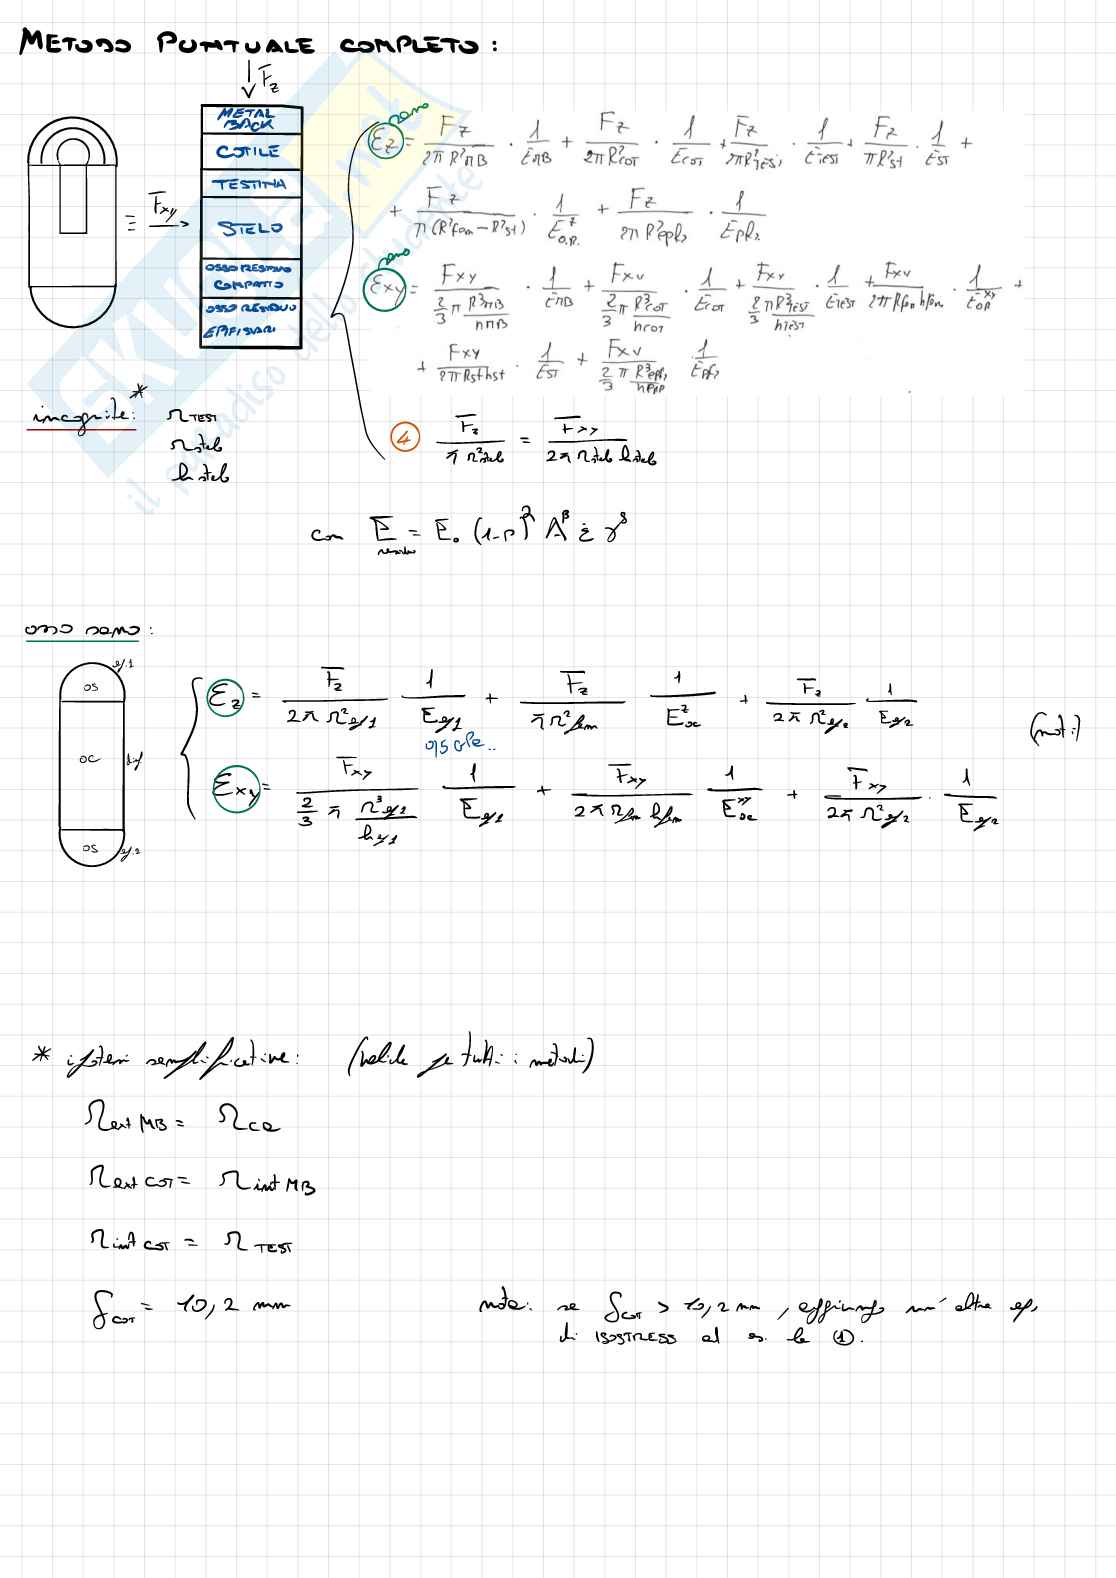 METODO PUNTUALE COMPLETO:
F_z
METAL BACK
COTILE
TESTINA
STELO
OSSO RESIDUO COMPATTO
OSSO RESIDUO EPIFISIARI
≡ F_xy →
sano
ε_z = F_z/(2π R²_MB) · 1/E_MB + F_z/(2π R²_COT) · 1/E_COT + F_z/(2π R²_TEST) · 1/E_TEST + F_z/(π R²_st) · 1/E_ST +
+ F_z/(π (R²_fem − R²_st)) · 1/E^z_O.R. + F_z/(2π R²_epif2) · 1/E_epif2
sano
ε_xy = F_xy/(2/3 π R³_MB/h_MB) · 1/E_MB + F_xy/(2/3 π R³_COT/h_COT) · 1/E_COT + F_xy/(2/3 π R³_TEST/h_TEST) · 1/E_TEST + F_xy/(2π R_fem h_fem) · 1/E^xy_OR +
+ F_xy/(2π R_st h_st) · 1/E_ST + F_xy/(2/3 π R³_epif2/h_epif2) · 1/E_epif2
incognite:* r_TEST
r_stelo
h_stelo
④ F_z/(π r²_stelo) = F_xy/(2π r_stelo h_stelo)
con E_residuo = E_0 (1-p)² A^β ε̇ γ^δ
osso sano:
ef.1
OS
OC
dif
OS
ef.2
ε_z = F_z/(2π r²_ef1) 1/E_ef1 + F_z/(π r²_fem) 1/E^z_oc + F_z/(2π r²_ef2) 1/E_ef2
(noti)
ε_xy = F_xy/(2/3 π r³_ef1/h_ef1) 1/E_ef1 + F_xy/(2π r_fem h_fem) 1/E^xy_oc + F_xy/(2π r²_ef2) · 1/E_ef2
* ipotesi semplificative: (valide per tutti i metodi)
r_ext MB = r_ca
r_ext COT = r_int MB
r_int COT = r_TEST
δ_COT = 10,2 mm
note: se δ_COT > 10,2 mm, aggiungo un'altra eq.
di ISOSTRESS ad es. la ①.
SKUOLA.net
il paradiso dello studente